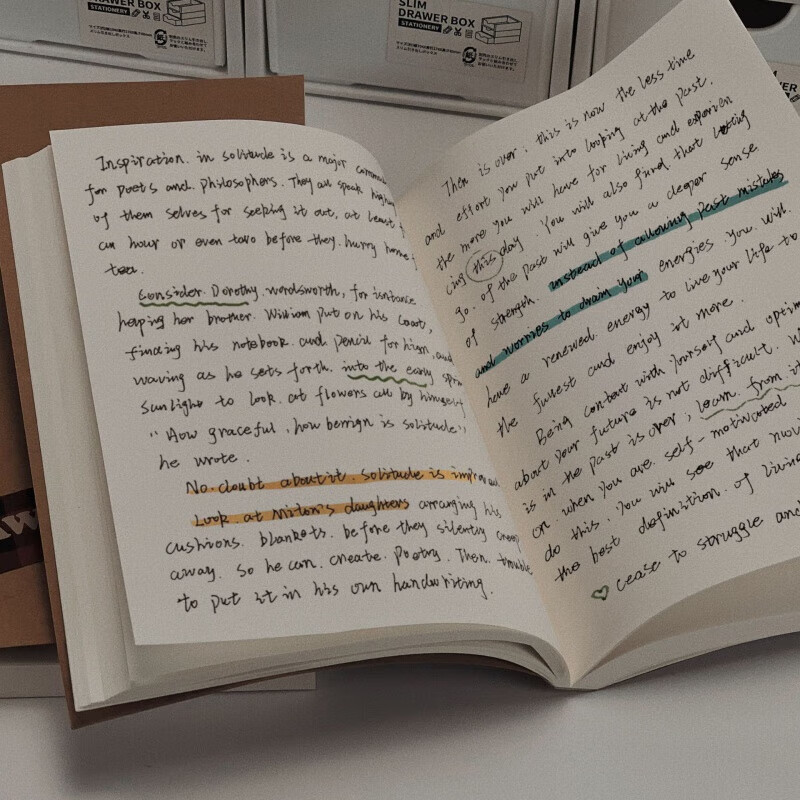 SLIM
DRAWER BOX
STATIONERY
DRAWER BOX
STATIONERY
Inspiration. in solitude is a major
for poets and. philosophers. They all speak
of them selves for seeking it out, at least
an hour or even two before they. hurry home
tea.
Consider. Dorothy. wordsworth, for isntance
helping her brother. William put on his coat,
finding his notebook. and pencil for him. and
waving as he sets forth. into the early
sunlight to look. at flowers all by himself
"How graceful, how benign is solitude",
he wrote.
No. doubt about it. solitude is
Look. at Milton's daughters arranging his
cushions. blankets. before they silently creep
away. so he can. create. Poetry. Then. trouble
to put it in his own handwriting.
Then is over. this is now the less time
and effort you put into looking at the past.
the more you will have for living and experien
cing this day. You will also find that letting
go. of the past will give you a deeper sense
of strength. instead of allowing past mistakes
and worries to drain your energies. you. will.
have a renewed. energy to live your life to
the fullest and enjoy it more.
Being content with yourself and
about your future is not difficult.
is in the past is over, learn. from it
on. when you are. self-motivated
do this. You will see that
the best definition. of living
cease to struggle and